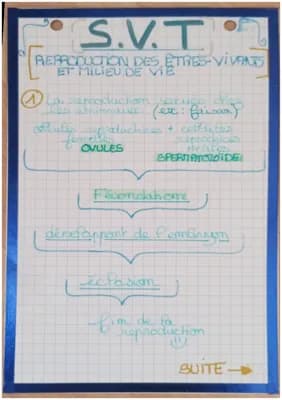 S.V.T
REPRODUCTION DES ÊTRES-VIVANTS
ET MILIEU DE VIE
1 La reproduction sexuée chez
les animaux (ex: faisan)
cellules reproductrices + cellules
femelles reproductrices
mâles
OVULES
SPERMATOZOÏDE
Fécondation
développant de l'embryon
éclosion
fin de la
reproduction
SUITE →